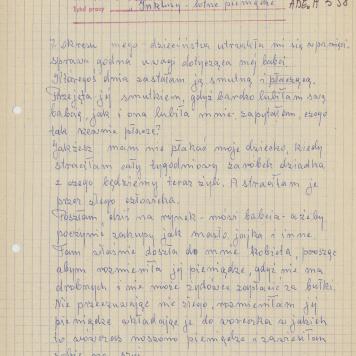 Tytuł pracy "Inkluz - lotne pieniądze
Z okresu mego dzieciństwa utrwaliła mi się w pamięci
sprawa godna uwagi dotycząca mej babci.
Któregoś dnia zastałam ją smutną i płaczącą.
Przejęta jej smutkiem, gdyż bardzo lubiłam swą
babcię, jak i ona lubiła mnie, zapytałam czego
tak rzewnie płacze?
Jakżesz mam nie płakać moje dziecko, kiedy
straciłam cały tygodniowy zarobek dziadka
z czego będziemy teraz żyli. A straciłam je
przez złego człowieka.
Poszłam dziś na rynek - mówi babcia - ażeby
poczynić zakupy jak masło, jajka i inne.
Tam właśnie doszła do mnie kobieta, prosząc
abym rozmieniła jej pieniądze, gdyż nie ma
drobnych i nie może żydowce zapłacić za bułki.
Nie przeczuwając nic złego, rozmieniłam jej
pieniądze wkładając je do woreczka w jakich
to wówczas noszono pieniądze i zawiesiłam